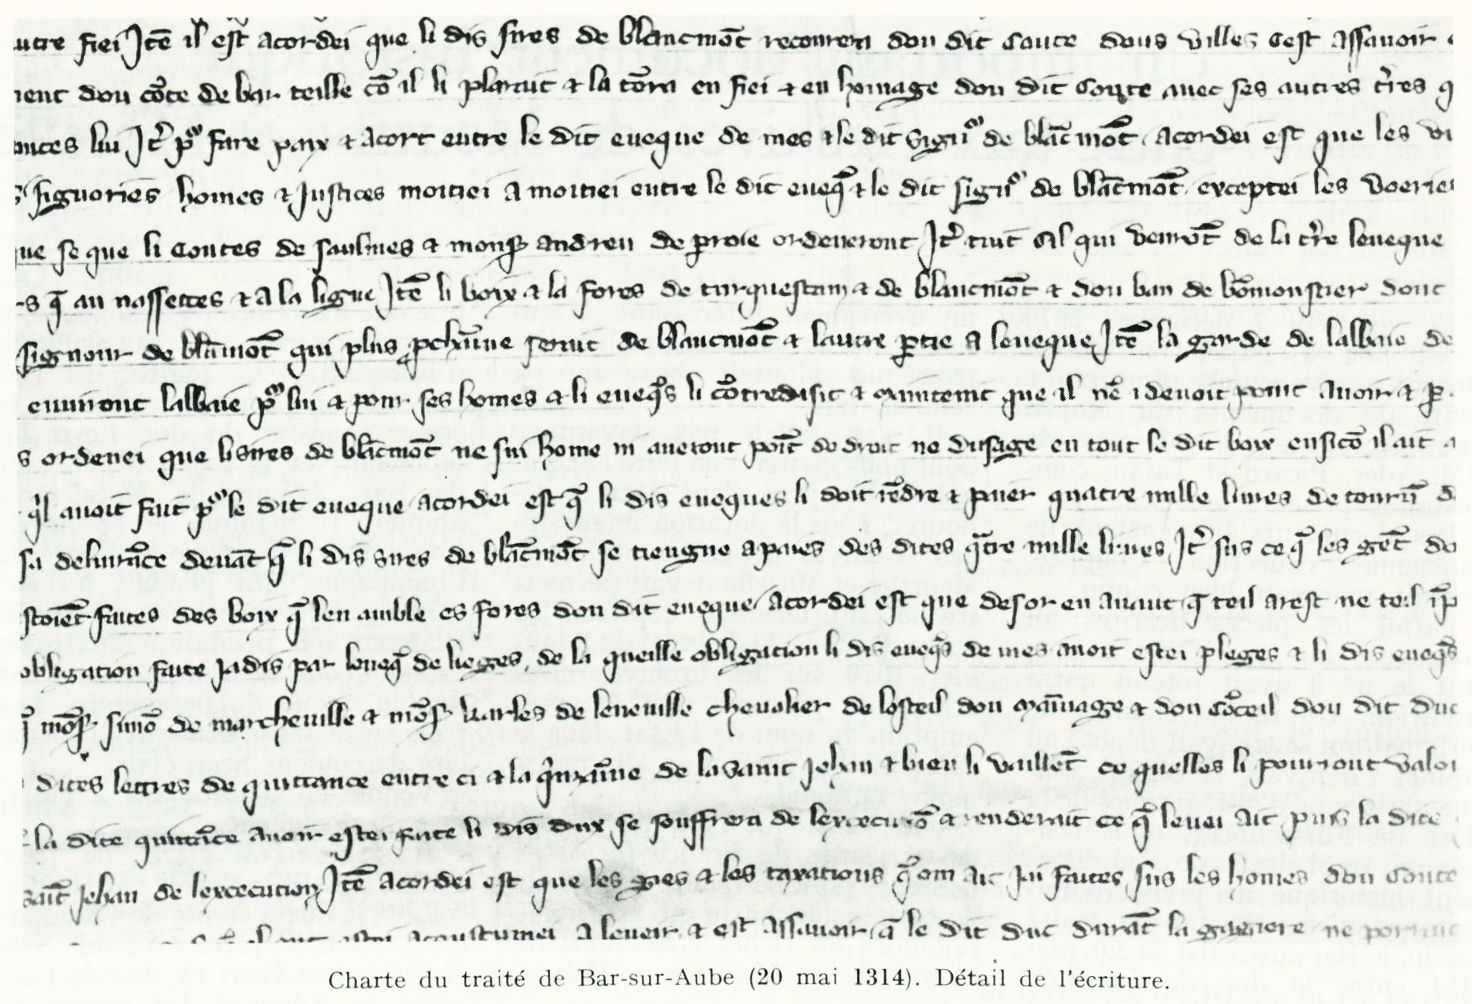 autre fiei Jtē il est acordei que li dis sires de blancmōt recourera dou dit Conte dous villes Cest assauoir
ment dou cōte de bar teille cō il li plarait & la tōra en fiei & en homage dou dit Conte auec ses autres t'res q
lui Jt' po' faire paix & acort entre le dit eueque de mes & le dit signo' de blācmōt acordei est que les vi
signories homes & Justices moitiei a moitiei entre le dit eueq̄ & le dit sign' de blācmōt exceptei les voeries
que se que li Contes de saulmes & monsr andreu de proie ordeneront Jt' tuit cil qui venrōt de la t're leueque
q̄ au nassettes & a la ligue Jtē li boix & la fores de turquestain & de blancmōt & dou ban de bōmonstier dont
signour de blāmōt qui plus pchaīne serait de blancmōt & lautre ptie a leueque Jtē la garde de labbaie de
labbaie po' lui & pour ses homes & li eueq̄s li cōtredisit & maintenit que il nē i deuoit point auoir & p
s ordenei que li sires de blācmōt ne sui home ni aueront poīt de droit ne dusage en tout le dit boix ensicō il ait a
qil auoit fait po' le dit eueque acordei est q̄ li dis eueques li doit rēdre & paier quatre mille liures de tourn̄ d
sa deliurāce deuāt q̄ li dis sires de blācmōt se tiengne a paies des dites q̄tre mille liures Jt' sus ce q̄ les gēt do
stoiēt faites des boix q̄ len amble es fores dou dit eueque acordei est que desor en auant q̄ teil arest ne teil īp
obligation faite jadis par leueq̄ de lieges, de la queille obligation li dis eueq̄s de mes auoit estei pleges & li dis eueq̄s
mōsr simō de marcheuille & mōsr Warles de leneuille cheualier de losteil dou maīnage & dou Cōceil dou dit duc
dites lettres de quittance entre ci & la q̄nzaīne de la saint Jehan & bien li vaillēt ce quelles li pourront valoi
la dite quittāce auoir estei faite li dis dux se souffrera de lexcecucō & renderait ce q̄ leuei ait puis la dite
saīt Jehan de lexcecution Jtē acordei est que les gies & les taxations q̄ om ait jai faites sus les homes dou Conte
acoustumei a leueir & est assauoir q̄ le dit duc durāt la guerre ne
Charte du traité de Bar-sur-Aube (20 mai 1314). Détail de l'écriture.